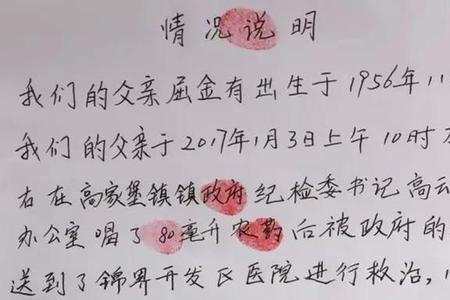 情况说明
我们的父亲屈金有出生于1956年11
我们的父亲于2017年1月3日上午10时
右在高家堡镇镇政府纪检委书记高云
办公室喝了80毫升农药后被政府的
送到了锦界开发区医院进行救治,